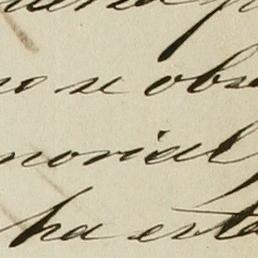 no se obse
morial
ha esta